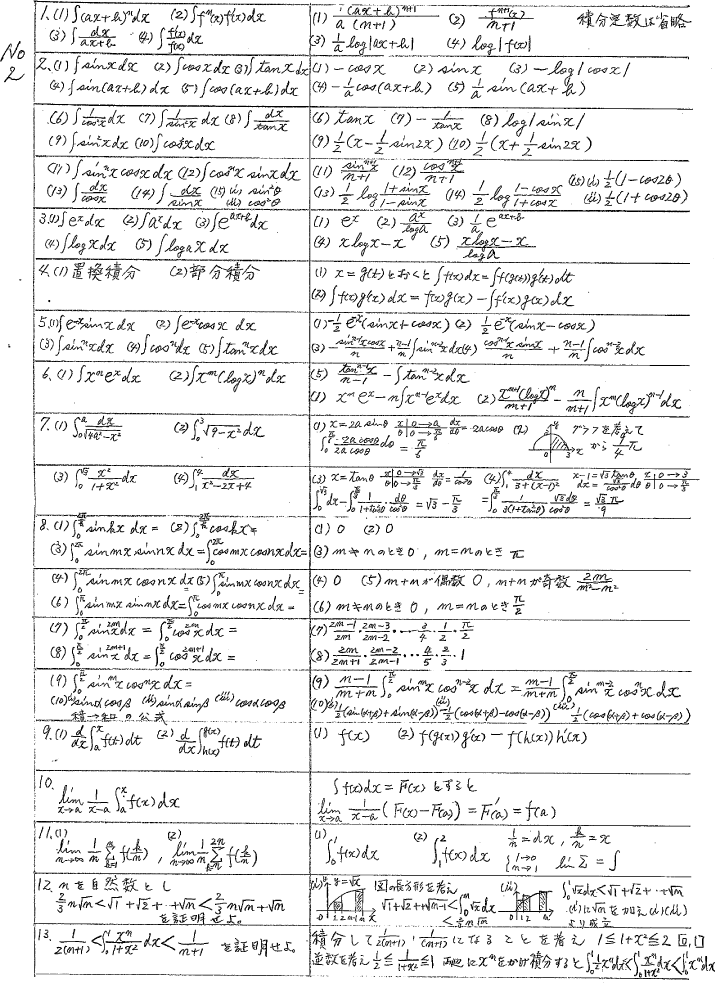 No 2
1. (1) ∫(ax+b)ⁿdx (2) ∫fⁿ(x)f'(x)dx
(3) ∫dx/(ax+b) (4) ∫f'(x)/f(x) dx
(1) (ax+b)ⁿ⁺¹/a(n+1) (2) fⁿ⁺¹(x)/(n+1) 積分定数は省略
(3) 1/a log|ax+b| (4) log|f(x)|
2. (1) ∫sinx dx (2) ∫cosx dx (3) ∫tanx dx
(4) ∫sin(ax+b)dx (5) ∫cos(ax+b)dx
(1) -cosx (2) sinx (3) -log|cosx|
(4) -1/a cos(ax+b) (5) 1/a sin(ax+b)
(6) ∫1/cos²x dx (7) ∫1/sin²x dx (8) ∫dx/tanx
(9) ∫sin²x dx (10) ∫cos²x dx
(6) tanx (7) -1/tanx (8) log|sinx|
(9) 1/2(x-1/2 sin2x) (10) 1/2(x+1/2 sin2x)
(11) ∫sinⁿx cosx dx (12) ∫cosⁿx sinx dx
(13) ∫dx/cosx (14) ∫dx/sinx (15) (i) sin²θ (ii) cos²θ
(11) sinⁿ⁺¹x/(n+1) (12) cosⁿ⁺¹x/(n+1) (15) (i) 1/2(1-cos2θ)
(13) 1/2 log (1+sinx)/(1-sinx) (14) 1/2 log (1-cosx)/(1+cosx) (ii) 1/2(1+cos2θ)
3. (1) ∫eˣdx (2) ∫aˣdx (3) ∫e^(ax+b)dx
(4) ∫logx dx (5) ∫logₐx dx
(1) eˣ (2) aˣ/loga (3) 1/a e^(ax+b)
(4) xlogx-x (5) (xlogx-x)/loga
4. (1) 置換積分 (2) 部分積分
(1) x=g(t)とおくと∫f(x)dx=∫f(g(t))g'(t)dt
(2) ∫f(x)g'(x)dx=f(x)g(x)-∫f'(x)g(x)dx
5. (1) ∫e⁻ˣsinx dx (2) ∫e⁻ˣcosx dx
(3) ∫sinⁿx dx (4) ∫cosⁿx dx (5) ∫tanⁿx dx
(1) -1/2 e⁻ˣ(sinx+cosx) (2) 1/2 e⁻ˣ(sinx-cosx)
(3) -sinⁿ⁻¹x cosx/n + (n-1)/n ∫sinⁿ⁻²x dx (4) cosⁿ⁻¹x sinx/n + (n-1)/n ∫cosⁿ⁻²x dx
6. (1) ∫xⁿeˣdx (2) ∫xᵐ(logx)ⁿdx
(5) tanⁿ⁻¹x/(n-1) - ∫tanⁿ⁻²x dx
(1) xⁿeˣ-n∫xⁿ⁻¹eˣdx (2) xᵐ⁺¹(logx)ⁿ/(m+1) - n/(m+1) ∫xᵐ(logx)ⁿ⁻¹dx
7. (1) ∫₀ᵃ dx/√(4a²-x²) (2) ∫₀³ √(9-x²) dx
(1) x=2a sinθ x|0→a θ|0→π/6 dx/dθ=2acosθ (2) グラフを考えて
∫₀^(π/6) 2acosθ/2acosθ dθ = π/6 から 9/4 π
(3) ∫₀^√3 x²/(1+x²) dx (4) ∫₁⁴ dx/(x²-2x+4)
(3) x=tanθ x|0→√3 θ|0→π/3 dx/dθ=1/cos²θ (4) ∫₁⁴ dx/(3+(x-1)²) x-1=√3tanθ dx=√3/cos²θ dθ x|0→3 θ|0→π/3
∫₀^√3 dx-∫₀^(π/3) 1/(1+tan²θ)・dθ/cos²θ=√3-π/3 =∫₀^(π/3) 1/3(1+tan²θ) √3dθ/cos²θ = √3π/9
8. (1) ∫₀^2π sinkx dx = (2) ∫₀^2π coskx =
(3) ∫₀^2π sinmx sinnx dx=∫₀^2π cosmx cosnx dx=
(1) 0 (2) 0
(3) m≠nのとき 0, m=nのとき π
(4) ∫₀^2π sinmx cosnx dx= (5) ∫₀^π sinmx cosnx dx=
(6) ∫₀^π sinmx sinnx dx=∫₀^π cosmx cosnx dx=
(4) 0 (5) m+nが偶数 0, m+nが奇数 2m/(m²-n²)
(6) m≠nのとき 0, m=nのとき π/2
(7) ∫₀^(π/2) sin²ᵐx dx = ∫₀^(π/2) cos²ᵐx dx =
(8) ∫₀^(π/2) sin²ᵐ⁺¹x dx = ∫₀^(π/2) cos²ᵐ⁺¹x dx =
(7) (2m-1)/2m・(2m-3)/(2m-2)・…・3/4・1/2・π/2
(8) 2m/(2m+1)・(2m-2)/(2m-1)・…4/5・2/3・1
(9) ∫₀^(π/2) sinᵐx cosⁿx dx=
(10) (i) sinαcosβ (ii) sinαsinβ (iii) cosαcosβ
積→和の公式
(9) (n-1)/(m+n) ∫₀^(π/2) sinᵐx cosⁿ⁻²x dx = (m-1)/(m+n) ∫₀^(π/2) sinᵐ⁻²x cosⁿx dx
(10) (i) 1/2(sin(α+β)+sin(α-β)) (ii) -1/2(cos(α+β)-cos(α-β)) (iii) 1/2(cos(α+β)+cos(α-β))
9. (1) d/dx ∫ₐˣ f(t)dt (2) d/dx ∫_h(x)^g(x) f(t)dt
(1) f(x) (2) f(g(x))g'(x) - f(h(x))h'(x)
10. lim x→a 1/(x-a) ∫ₐˣ f(x)dx
∫f(x)dx=F(x)とすると
lim x→a 1/(x-a) (F(x)-F(a))=F'(a)=f(a)
11. (1) lim n→∞ 1/n Σ k=1 n f(k/n), (2) lim n→∞ 1/n Σ k=n 2n f(k/n)
(1) ∫₀¹ f(x)dx (2) ∫₁² f(x)dx 1/n=dx, k/n=x
lim Σ=∫
12. nを自然数とし
2/3 n√n<√1+√2+・+√n<2/3 n√n+√n
を証明せよ。
(i) y=√x 図の長方形を考え (ii) ∫₀ⁿ√x dx<√1+√2+・+√n
√1+√2+・+√n-1<∫₀ⁿ√x dx (i)に√nを加え(i)(ii)
=2/3 n√n より成立
13. 1/2(n+1)<∫₀¹ xⁿ/(1+x²) dx<1/(n+1) を証明せよ。
積分して1/2(n+1), 1/(n+1)になることを考え 1≦1+x²≦2 [0,1]
逆数を考え 1/2≦1/(1+x²)≦1 両辺にxⁿをかけ積分すると∫₀¹ 1/2 xⁿdx<∫₀¹ xⁿ/(1+x²) dx<∫₀¹ xⁿdx